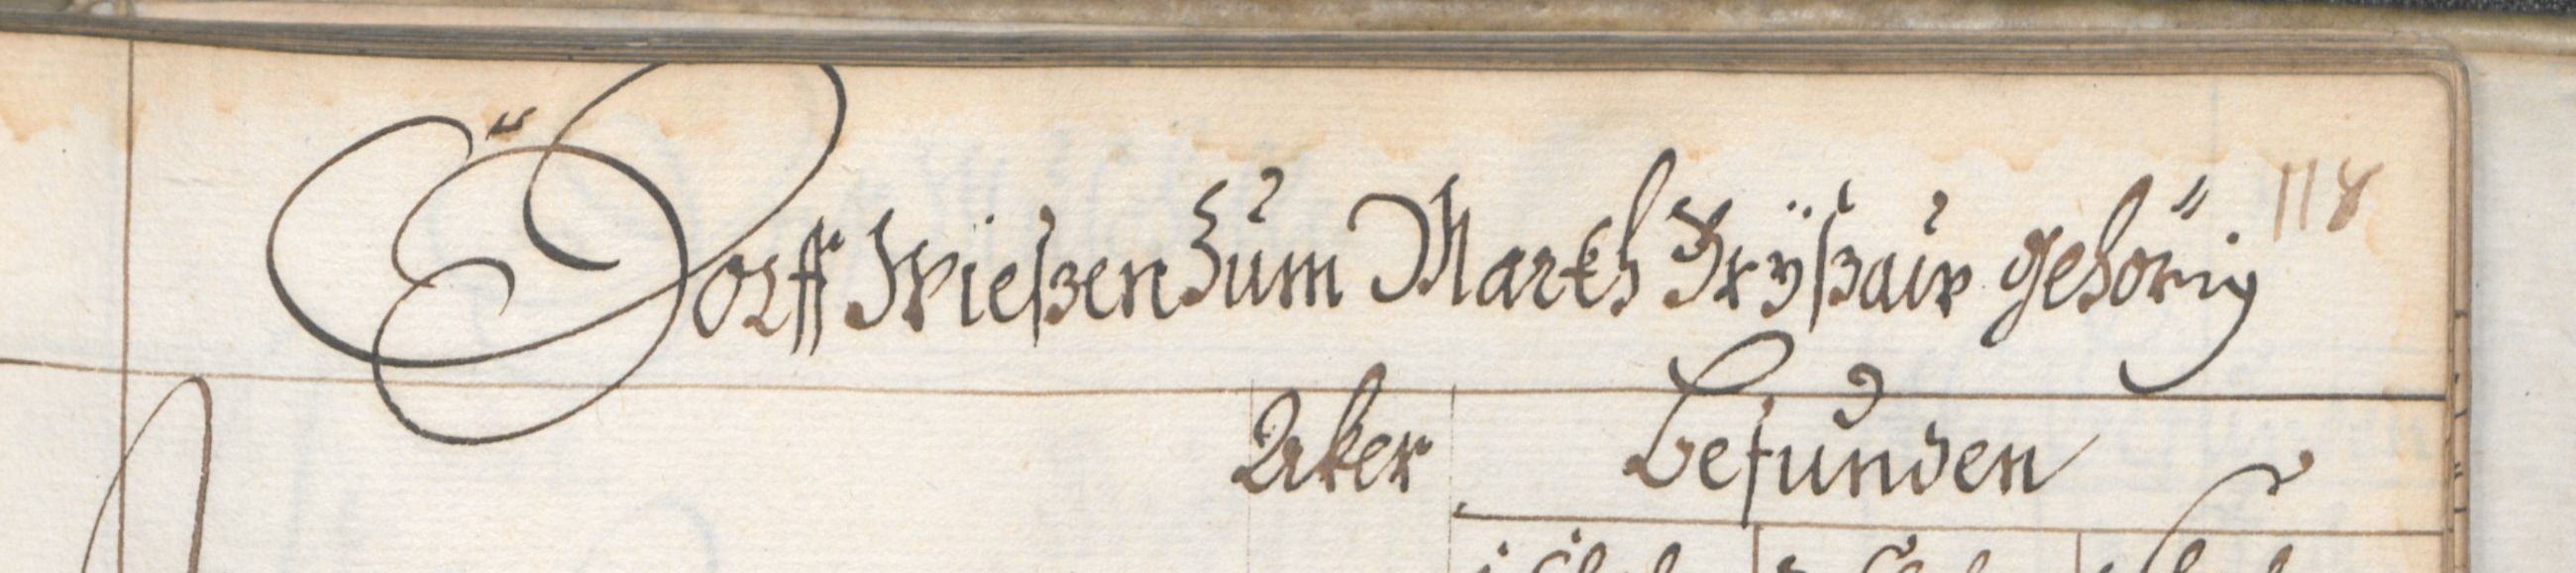 Dorff Wießen Zum Markh Fryßaw gehörig 118
Aker Befunden